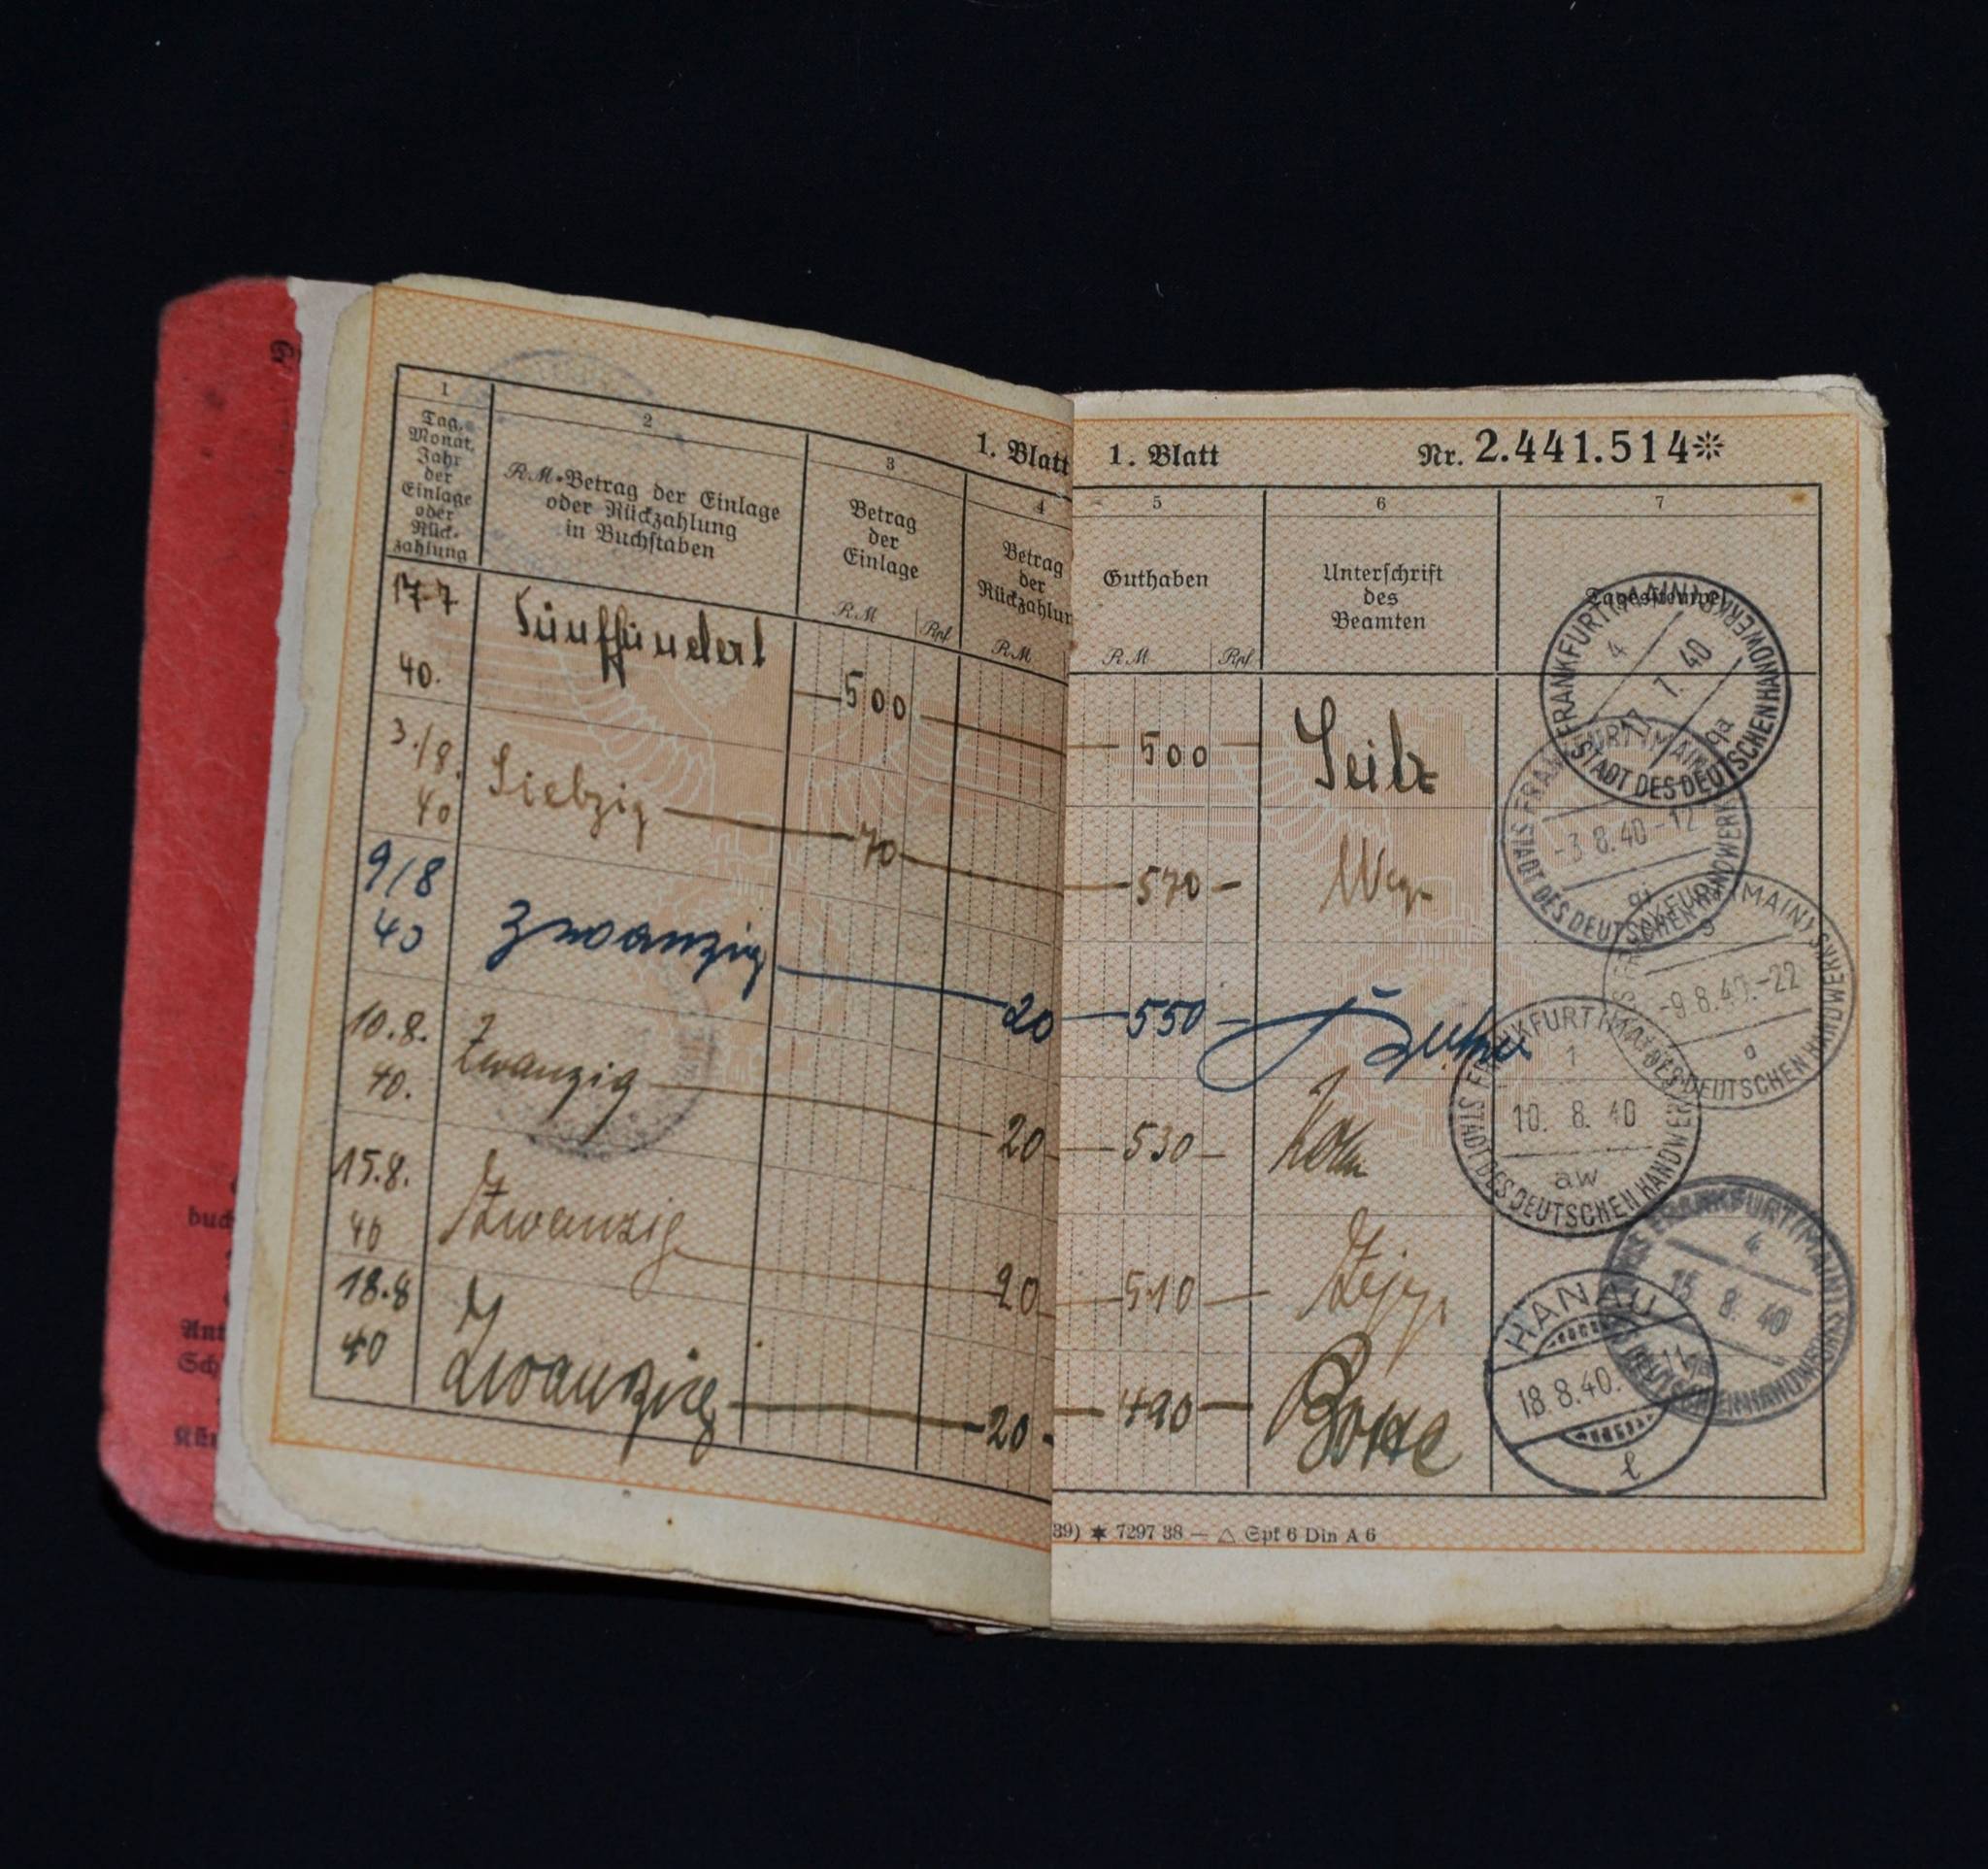 1. Blatt
1
Tag,
Monat,
Jahr
der
Einlage
oder
Rück-
zahlung
2
RM-Betrag der Einlage
oder Rückzahlung
in Buchstaben
3
Betrag
der
Einlage
RM Rpf
4
Betrag
der
Rückzahlun
RM
17.7
40.
Fünfhundert
—500—
3./8.
40
Siebzig — 70 —
9/8
40
Zwanzig — 20
10.8.
40.
Zwanzig — 20
15.8.
40
Zwanzig — 20
18.8
40
Zwanzig — 20 -
1. Blatt Nr. 2.441.514
5
Guthaben
RM Rpf
6
Unterschrift
des
Beamten
7
Tagesstempel
— 500 —
— 570 —
— 550 —
— 530 —
— 510 —
— 490 —
FRANKFURT (MAIN)
STADT DES DEUTSCHEN HANDWERKS
4
17. 7. 40
FRANKFURT (MAIN)
STADT DES DEUTSCHEN HANDWERKS
-3.8.40-12
FRANKFURT (MAIN)
STADT DES DEUTSCHEN HANDWERKS
9
-9.8.40.-22
a
FRANKFURT (MAIN)
STADT DES DEUTSCHEN HANDWERKS
1
10. 8. 40
aw
FRANKFURT (MAIN)
STADT DES DEUTSCHEN HANDWERKS
4
15. 8. 40
HANAU
18.8.40.
l
39) ✶ 7297 38 — △ Spf 6 Din A 6
buch
Ant
Sch
Kün